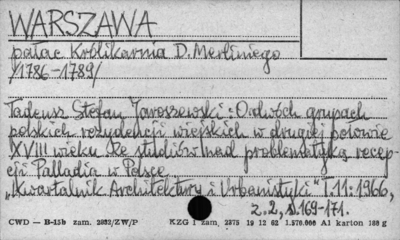 WARSZAWA
pałac Królikarnia D. Merliniego
/1786-1789/
Tadeusz Stefan Jaroszewski: O dwóch grupach
polskich rezydencji wiejskich w drugiej połowie
XVIII wieku. Ze studiów nad problematyką recep-
cji Palladia w Polsce.
"Kwartalnik Architektury i Urbanistyki" t.11:1966,
z.2, s.169-171.
CWD — B-15b zam. 2932/ZW/P KZG I zam. 2375 19 12 62 1.576.000 A1 karton 188 g